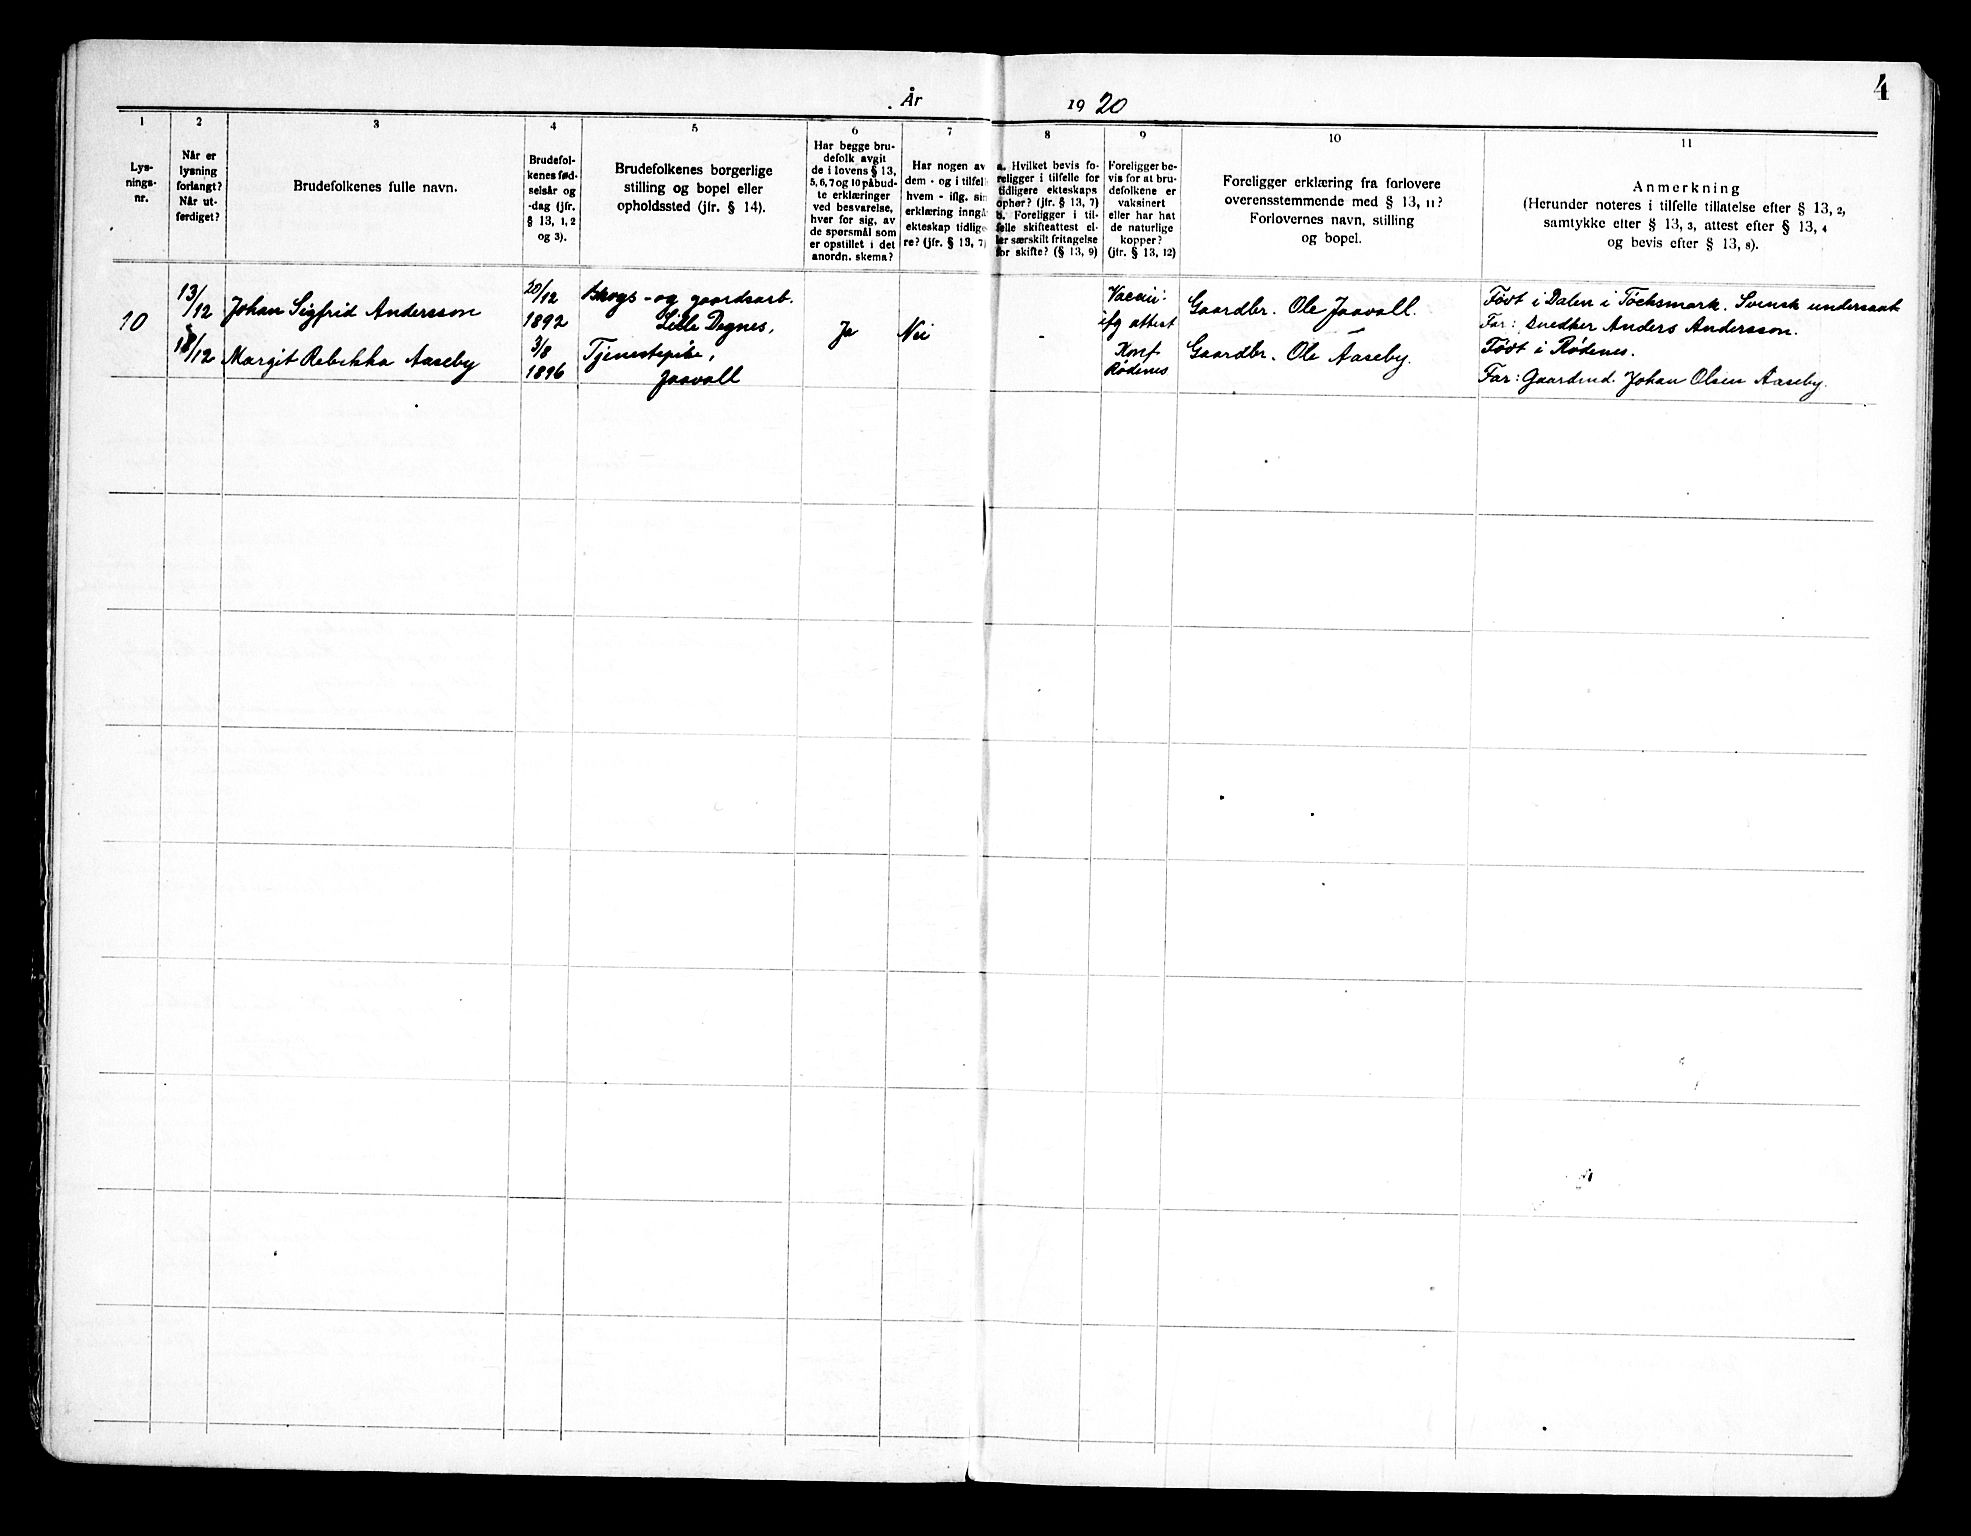 4
År 1920
1
2
3
4
5
6
7
8
9
10
11
Lys-
nings-
nr.
Når er
lysning
forlangt?
Når ut-
ferdiget?
Brudefolkenes fulle navn.
Brudefol-
kenes fød-
selsår og
-dag (jfr.
§ 13, 1, 2
og 3).
Brudefolkenes borgerlige
stilling og bopel eller
opholdssted (jfr. § 14).
Har begge bru-
defolk avgit
de i lovens § 13,
5, 6, 7 og 10 påbud-
te erklæringer
ved besvarelse,
hver for sig, av
de spørsmål som
er opstillet i det
anordn. skema?
Har nogen av
dem - og i tilfelle
hvem - iflg. sin
erklæring inngå
ekteskap tidlige
re? (jfr. § 13, 7)
a. Hvilket bevis fo-
religger i tilfelle for
tidligere ekteskaps
ophør? (jfr. § 13, 7)
b. Foreligger i til-
felle skifteattest el-
ler særskilt fritagelse
for skifte? (§ 13, 9)
Foreligger be-
vis for at bru-
defolkene er
vaksinert
eller har hat
de naturlige
kopper?
(jfr. § 13, 12)
Foreligger erklæring fra forlovere
overensstemmende med § 13, 11?
Forlovernes navn, stilling
og bopel.
Anmerkning
(Herunder noteres i tilfelle tillatelse efter § 13, 2,
samtykke efter § 13, 3, attest efter § 13, 4
og bevis efter § 13, 8).
10
13/12
18/12
Johan Sigfrid Andersson
Margit Rebekka Aaseby
20/12
1892
3/8
1896
Skogs- og gaardsarb.
Lille Degnes,
Tjenestepike,
Jaavall
Ja
Nei
-
Vaccin:
ifg attest
Konf.
Rødenes
Gaardbr. Ole Jaavall.
Gaardbr. Ole Aaseby.
Født i Dalen i Töcksmark. Svensk undersaat
Far: Snedker Anders Andersson.
Født i Rødenes.
Far: Gaardmd. Johan Olsen Aaseby.